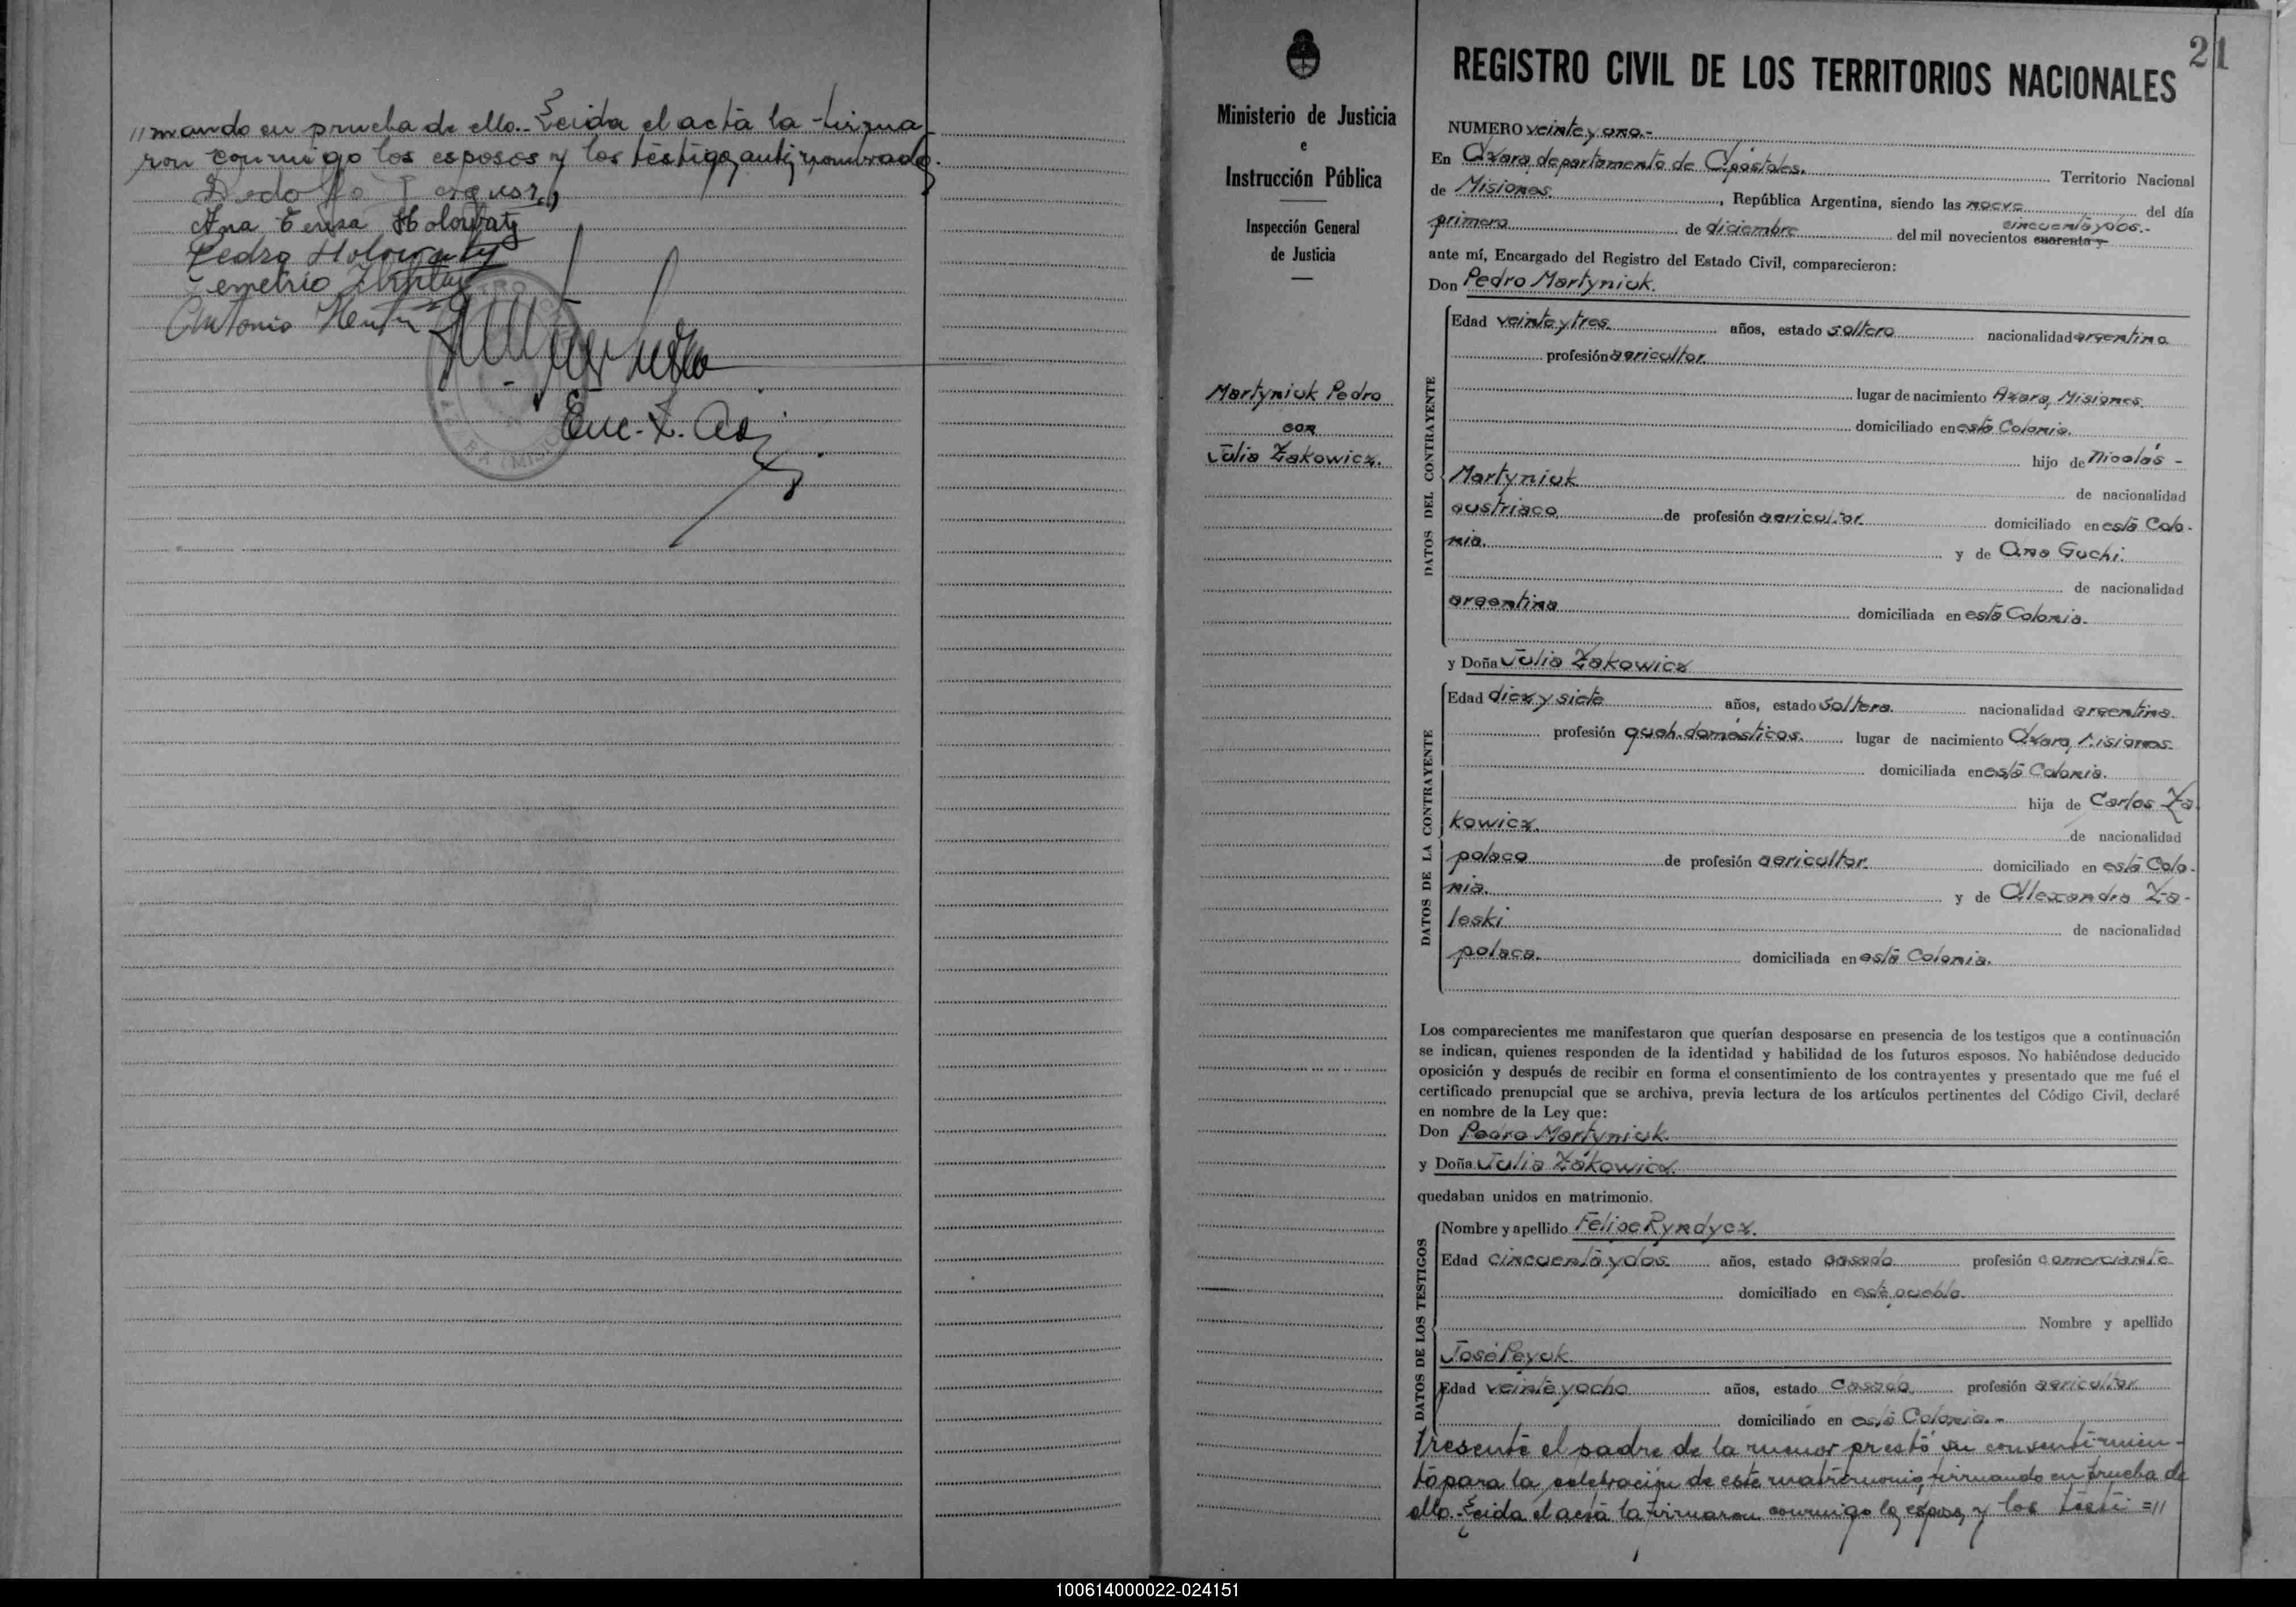 //mando en prueba de ello.- Leida el acta la firma
ron conmigo los esposos y los testigos antes nombrados.
Ana Teresa Holowaty
Pedro Holowaty
Antonio
Enc.
21
Ministerio de Justicia
e
Instrucción Pública
Inspección General
de Justicia
Martyniuk Pedro
con
Julia Zakowicz.
REGISTRO CIVIL DE LOS TERRITORIOS NACIONALES
NUMERO veinte y uno.-
En Azara, departamento de Apóstoles. Territorio Nacional
de Misiones, República Argentina, siendo las nueve del día
cincuenta y dos.-
primero de diciembre del mil novecientos cuarenta y
ante mí, Encargado del Registro del Estado Civil, comparecieron:
Don Pedro Martyniuk.
DATOS DEL CONTRAYENTE
Edad veinte y tres años, estado soltero nacionalidad argentina
profesión agricultor.
lugar de nacimiento Azara, Misiones.
domiciliado en esta Colonia.
hijo de Nicolás -
Martyniuk de nacionalidad
austriaco de profesión agricultor domiciliado en esta Colo-
nia. y de Ana Guchi.
de nacionalidad
argentina domiciliada en esta Colonia.
y Doña Julia Zakowicz
DATOS DE LA CONTRAYENTE
Edad diez y siete años, estado soltera. nacionalidad argentina.
profesión queh. domésticos. lugar de nacimiento Azara, Misiones.
domiciliada en esta Colonia.
hija de Carlos Za
kowicz. de nacionalidad
polaco de profesión agricultor. domiciliado en esta Colo-
nia. y de Alexandra Za-
leski de nacionalidad
polaca. domiciliada en esta Colonia.
Los comparecientes me manifestaron que querían desposarse en presencia de los testigos que a continuación
se indican, quienes responden de la identidad y habilidad de los futuros esposos. No habiéndose deducido
oposición y después de recibir en forma el consentimiento de los contrayentes y presentado que me fué el
certificado prenupcial que se archiva, previa lectura de los artículos pertinentes del Código Civil, declaré
en nombre de la Ley que:
Don Pedro Martyniuk.
y Doña Julia Zakowicz.
quedaban unidos en matrimonio.
DATOS DE LOS TESTIGOS
Nombre y apellido Felipe Ryndycz.
Edad cincuenta y dos años, estado casado profesión comerciante
domiciliado en este pueblo.
Nombre y apellido
José Peyuk.
Edad veinte y ocho años, estado casado profesión agricultor
domiciliado en esta Colonia.-
Presente el padre de la menor prestó su consentimien-
to para la celebración de este matrimonio, firmando en prueba de
ello.- Leida el acta la firmaron conmigo los esposos y los testi =//
100614000022-024151